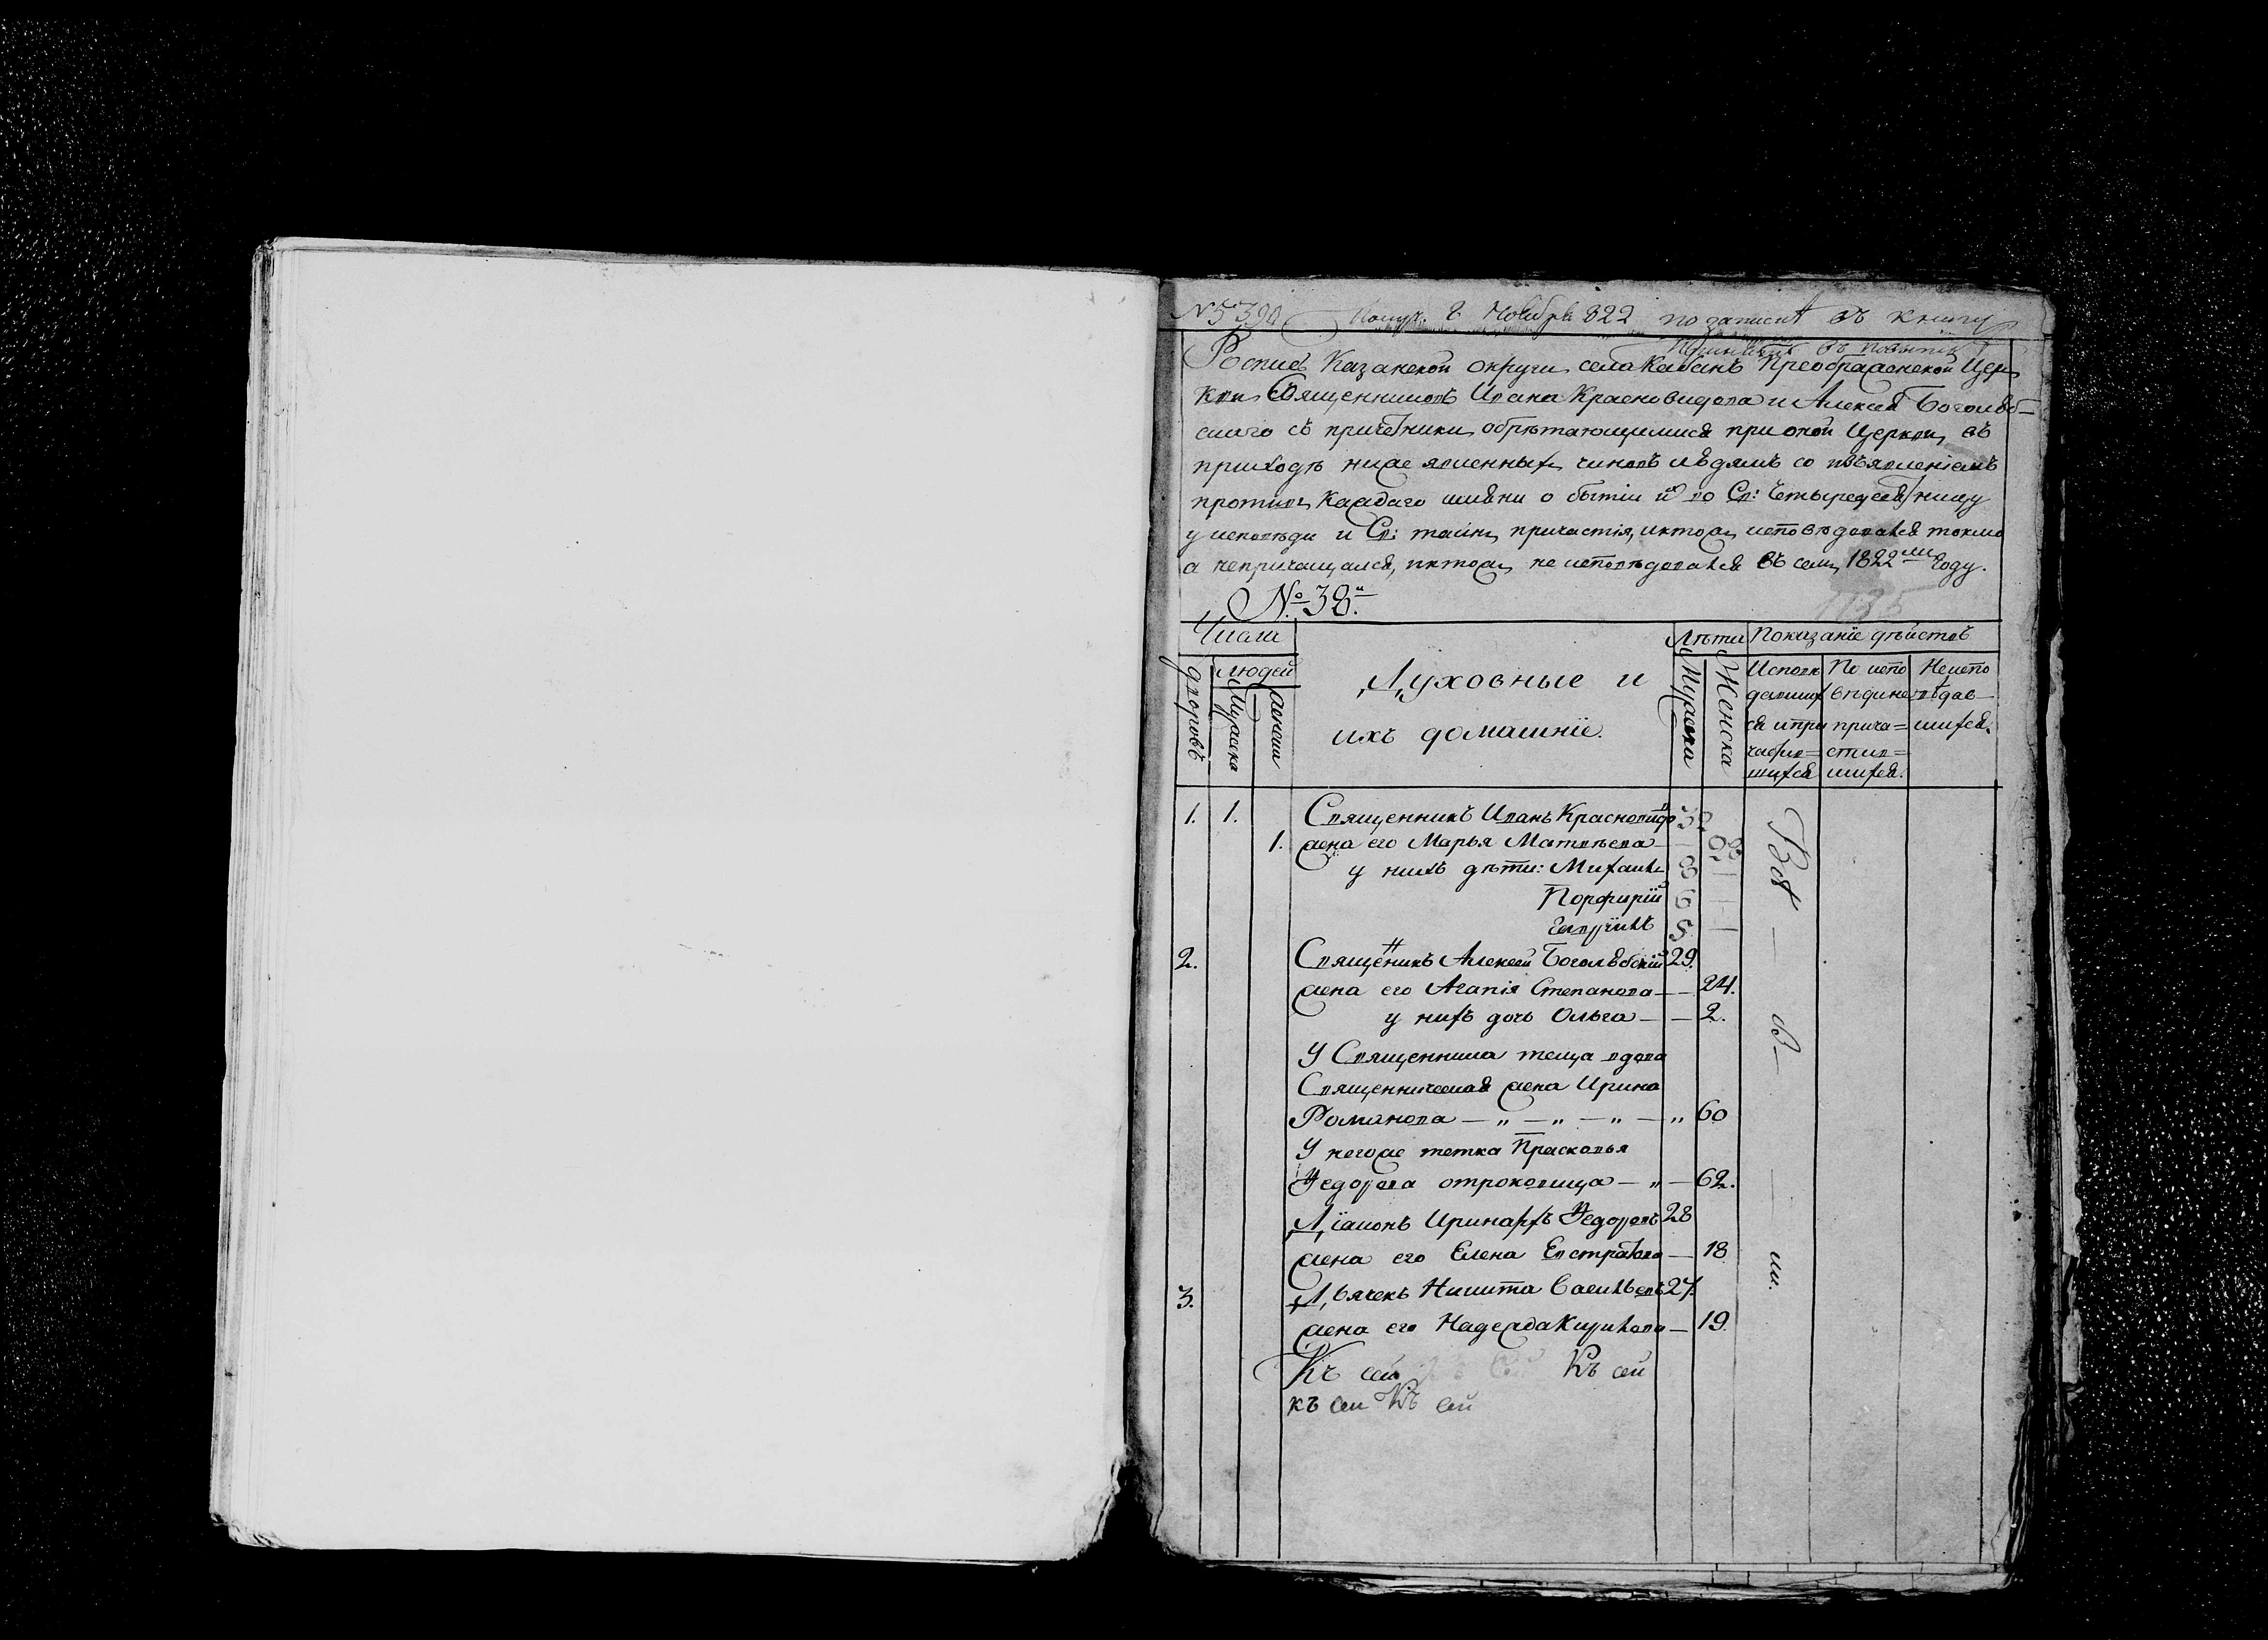 № 5390 Получ. 8 Ноября 822 по записи въ книгу
Роспись Казанской округи села Кабанъ Преображенской Цер
кви Священниковъ Ивана Красновидова и Алексея Боголюб-
скаго съ причетники, обрѣтающимися при оной Церкви, въ
приходѣ ниже явленныхъ чиновъ людямъ со изъявленіемъ
противъ каждаго имяни о бытіи ихъ во Св: четыредесятницу
у исповѣди и Св: таинъ причастія, и ктожъ исповѣдовался токмо
а непричащался, и ктожъ не исповѣдовался въ семъ 1822мъ году.
№ 38й
Числа
Лѣта Показаніе дѣйствъ
дворовъ
людей
Мужска
женска
Духовные и
ихъ домашніе.
Мужска
Женска
Исповѣ По испо Неиспо
давших вѣди не вѣдав-
ся и при прича= шихся.
частив= стив=
шихся шихся.
1. 1. Священникъ Иванъ Красновидо
1. жена его Марья Матвѣева —
у нихъ дѣти: Михаилъ 8
Порфирій 6
5
2. Священикъ Алексей Боголюбскій 29.
жена его Агапія Степанова — 24.
у нихъ дочь Ольга — — 2.
У Священника теща вдова
Священническая жена Ирина
Романова — „ — „ — „ — „ 60
У негоже тетка Прасковья
Федорова отроковица — „ — 62.
Діаконъ Иринархъ Федоровъ 28
жена его Елена Евстратова — 18
3. Дьячекъ Никита Васильевъ 27.
жена его Надежда Кирилова — 19.
Всѣ — бы— ли.
Къ сей Къ сей
къ сей Къ сей